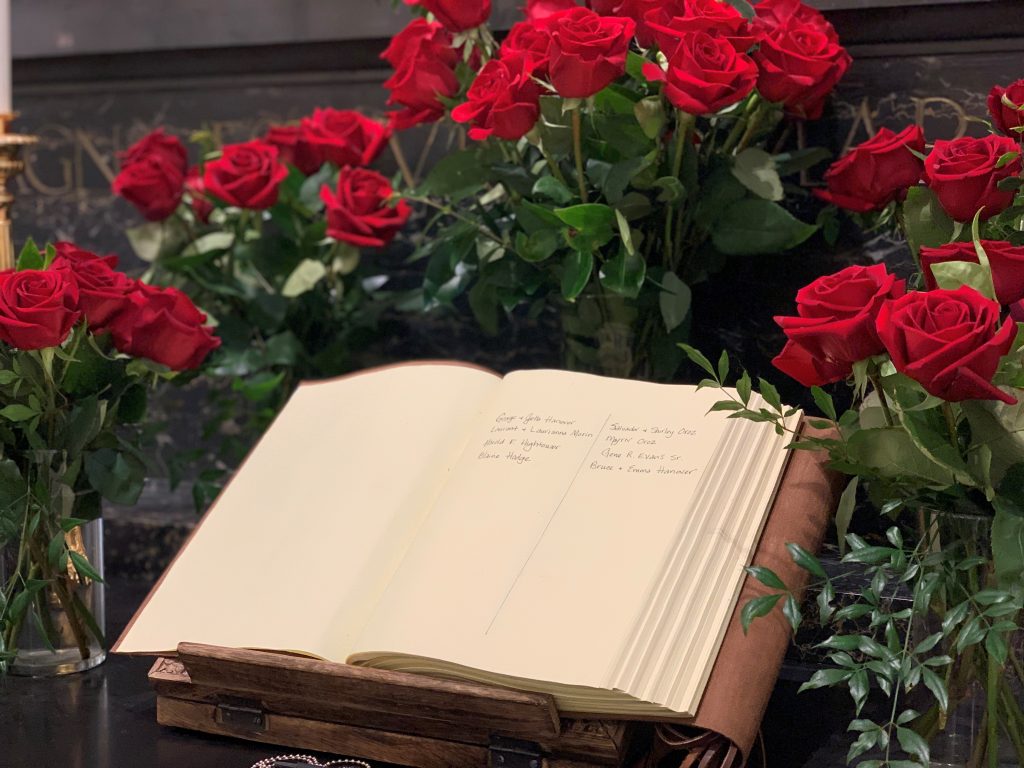 George + Greta Hanover
Laurant + Laurianna Marin
Harold F. Hightower
Blaine Hodge
Salvador + Shirley Orez
Mayrin Orez
Gene R. Evans Sr.
Bruce + Emma Hanover